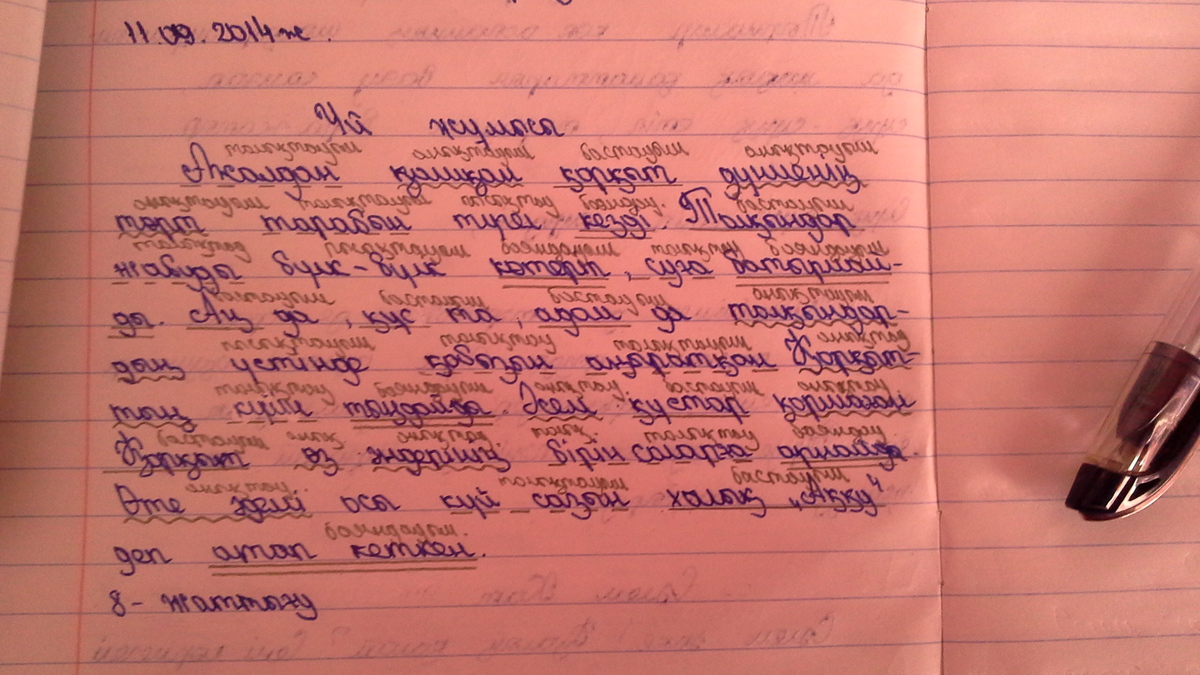 11.09.2014ж.
Үй жұмысы
толықтауыш анықтауыш бастауыш анықтауыш
Ажалдан қашқан Қорқыт дүниенің
анықтауыш толықтауыш пысықтау баяндау. бастауыш
төрт тарабын түгел кезд. Толқындар
толықтауыш пысықтауыш баяндауыш толықтау баяндауыш
жабуды бүлк-бүлк көтеріп, суға батырмай-
бастауыш бастауыш бастауыш анықтауыш
ды. Аң да, құс та, адам да толқындар-
пысықтауыш толықтау толықтауыш анықтау
дың үстінде қобызын аңыратқан Қорқыт-
толықтау баяндауыш анықтау бастауыш анықтау
тың күйін тыңдайды. Әсем құстар қоршаған
бастауыш анық анықтау толық толықтау баяндау
Қорқыт өз әндерінің бірін соларға арнайды.
анықтау толықтауыш бастауыш
Өте әдемі осы күй сазын халық „Аққу"
баяндауыш.
деп атап кеткен.
8- жаттығу